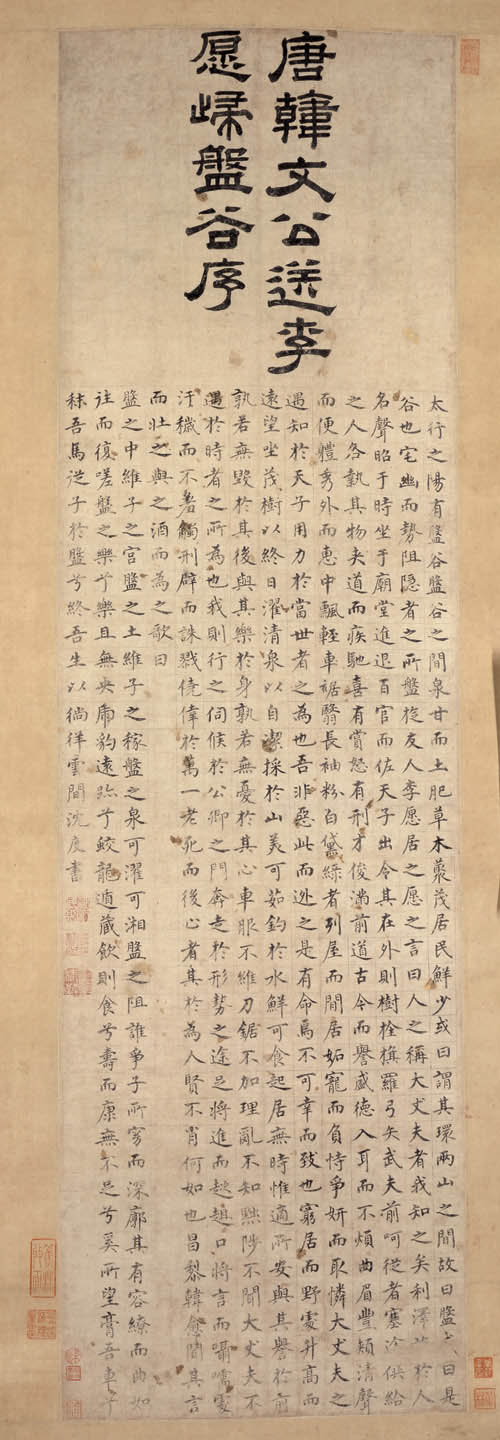 唐韓文公送李
愿歸盤谷序
太行之陽有盤谷盤谷之間泉甘而土肥草木藂茂居民鮮少或曰謂其環兩山之間故曰盤曰是
谷也宅幽而勢阻隱者之所盤旋友人李愿居之愿之言曰人之稱大丈夫者我知之矣利澤施於人
名聲昭于時坐于廟堂進退百官而佐天子出令其在外則樹栓旗羅弓矢武夫前呵從者塞途供給
之人各執其物夾道而疾馳喜有賞怒有刑才俊滿前道古今而譽盛德入耳而不煩曲眉豐頰清聲
而便體秀外而惠中飄輕車裾翳長袖粉白黛綠者列屋而閒居妬寵而負恃爭妍而取憐大丈夫之
遇知於天子用力於當世者之為也吾非惡此而逃之是有命焉不可幸而致也窮居而野處升高而
遠望坐茂樹以終日濯清泉以自潔採於山美可茹釣於水鮮可食起居無時惟適所安與其譽於前
孰若無毀於其後與其樂於身孰若無憂於其心車服不維刀鋸不加理亂不知黜陟不聞大丈夫不
遇於時者之所為也我則行之伺候於公卿之門奔走於形勢之途足將進而趑趄口將言而囁嚅處
汙穢而不羞觸刑辟而誅戮僥倖於萬一老死而後止者其於為人賢不肖何如也昌黎韓愈聞其言
而壯之與之酒而為之歌曰
盤之中維子之宮盤之土維子之稼盤之泉可濯可湘盤之阻誰爭子所窈而深廓其有容繚而曲如
往而復嗟盤之樂兮樂且無央虎豹遠跡兮蛟龍遁藏飲則食兮壽而康無不足兮奚所望膏吾車兮
秣吾馬從子於盤兮終吾生以徜徉雲間沈度書